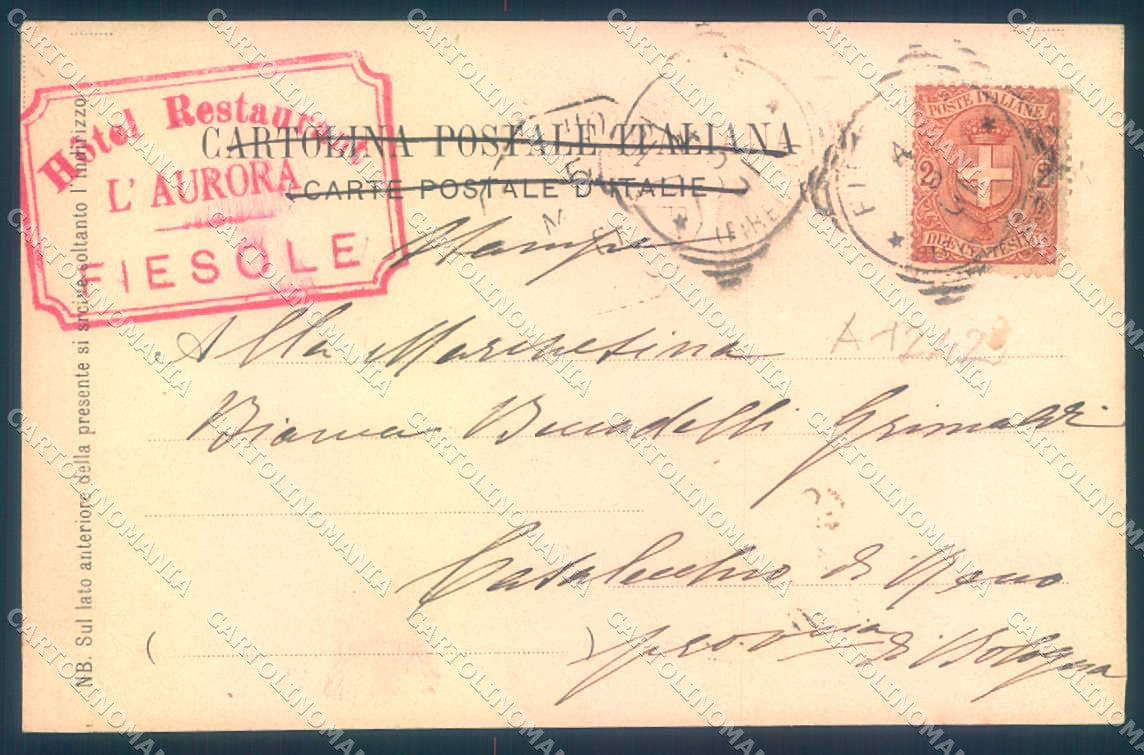 Hôtel Restaurant
L' AURORA
FIESOLE
CARTOLINA POSTALE ITALIANA
CARTE POSTALE D'ITALIE
POSTE ITALIANE
2 2
DUE CENTESIMI
Stampe
Alla Marchesina
A1242
Bianca Buradelli Grimaldi
Casalecchio di Reno
( )
provincia di Bologna
NB. Sul lato anteriore della presente si srcive soltanto l'indirizzo
CARTOLINOMANIA